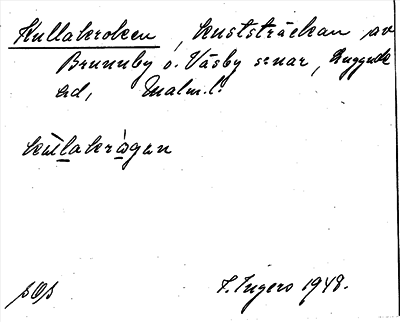 Kullakroken, kuststräckan av
Brunnby o. Väsby socnar, Luggude
hd, Malm.l.
kùlakrògan
sOs
F. Ingers 1948.